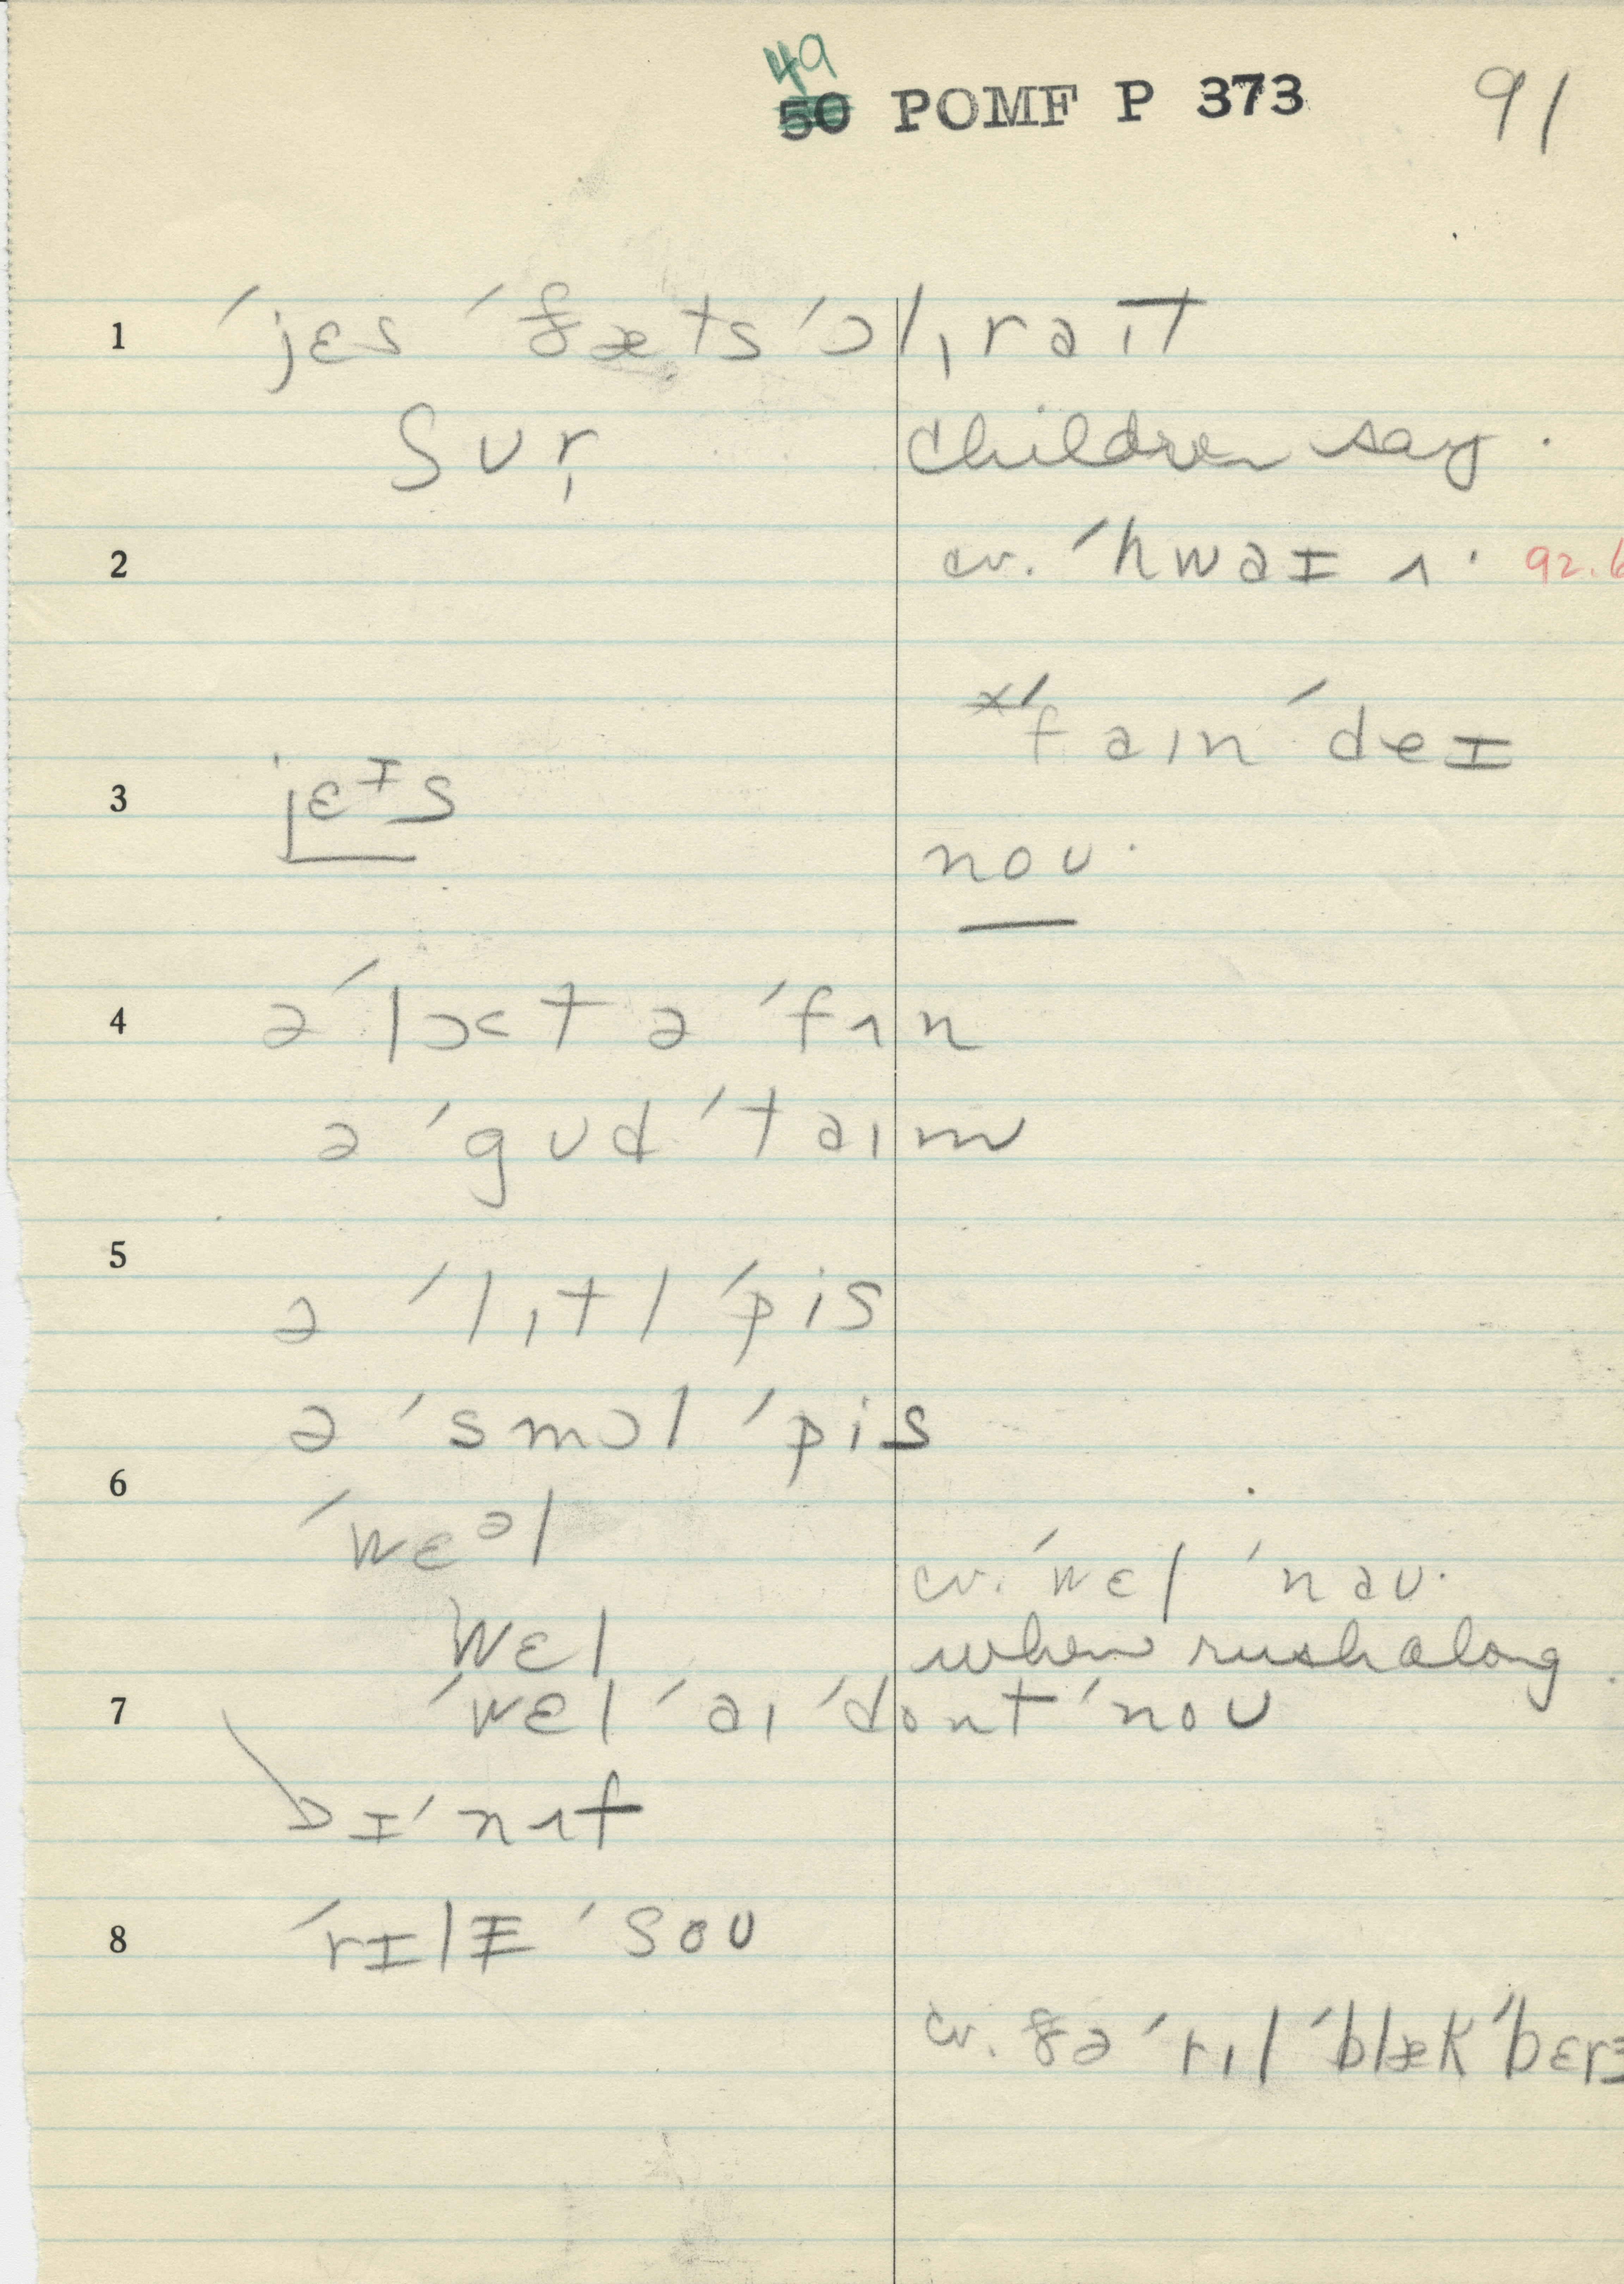 49
50 POMF P 373 91
1 ˈjɛs ˈðæts ˈɔlˌraɪt
ʃʊr̩ children say.
2 cv. ˈhwaɪ ʌ. 92.6
×ˈfaɪn ˈdeɪ
3 jɛᴵs
noʊ.
4 əˈlɔt ə ˈfʌn
ə ˈgʊd ˈtaɪm
5
ə ˈlɪtl ˈpis
ə ˈsmɔl ˈpis
6
ˈwɛᵊl
cv. ˈwɛl ˈnaʊ.
wɛl when rush along.
7 ˈwɛl ˈaɪ ˈdont ˈnoʊ
ɪˈnʌf
8 ˈrɪlɪ ˈsoʊ
cv. ðə ˈrɪl ˈblæk ˈbɛrɪ